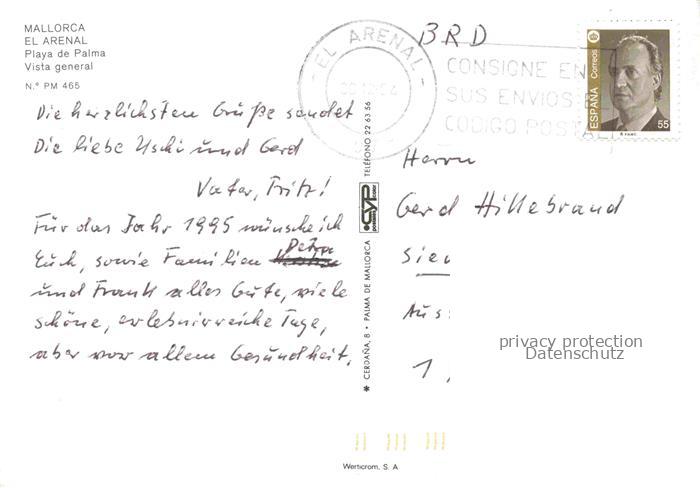 MALLORCA
EL ARENAL
Playa de Palma
Vista general
N.° PM 465
Die herzlichsten Grüße sendet
Die liebe Uschi und Gerd
Vater, Fritz!
Für das Jahr 1995 wünsche ich
Euch, sowie Familien
und Frank alles Gute, viele
schöne, erlebnisreiche Tage,
aber vor allem Gesundheit.
✱ CERDAÑA, 8 • PALMA DE MALLORCA
CYP
TELÉFONO 22 63 56
- EL ARENAL -
CONSIGNE EN
SUS ENVIOS EL
CODIGO POSTAL
ESPAÑA
Correos
55
BRD
Herrn
Gerd Hillebrand
Sie
Aus
1
privacy protection
Datenschutz
Werticrom, S. A